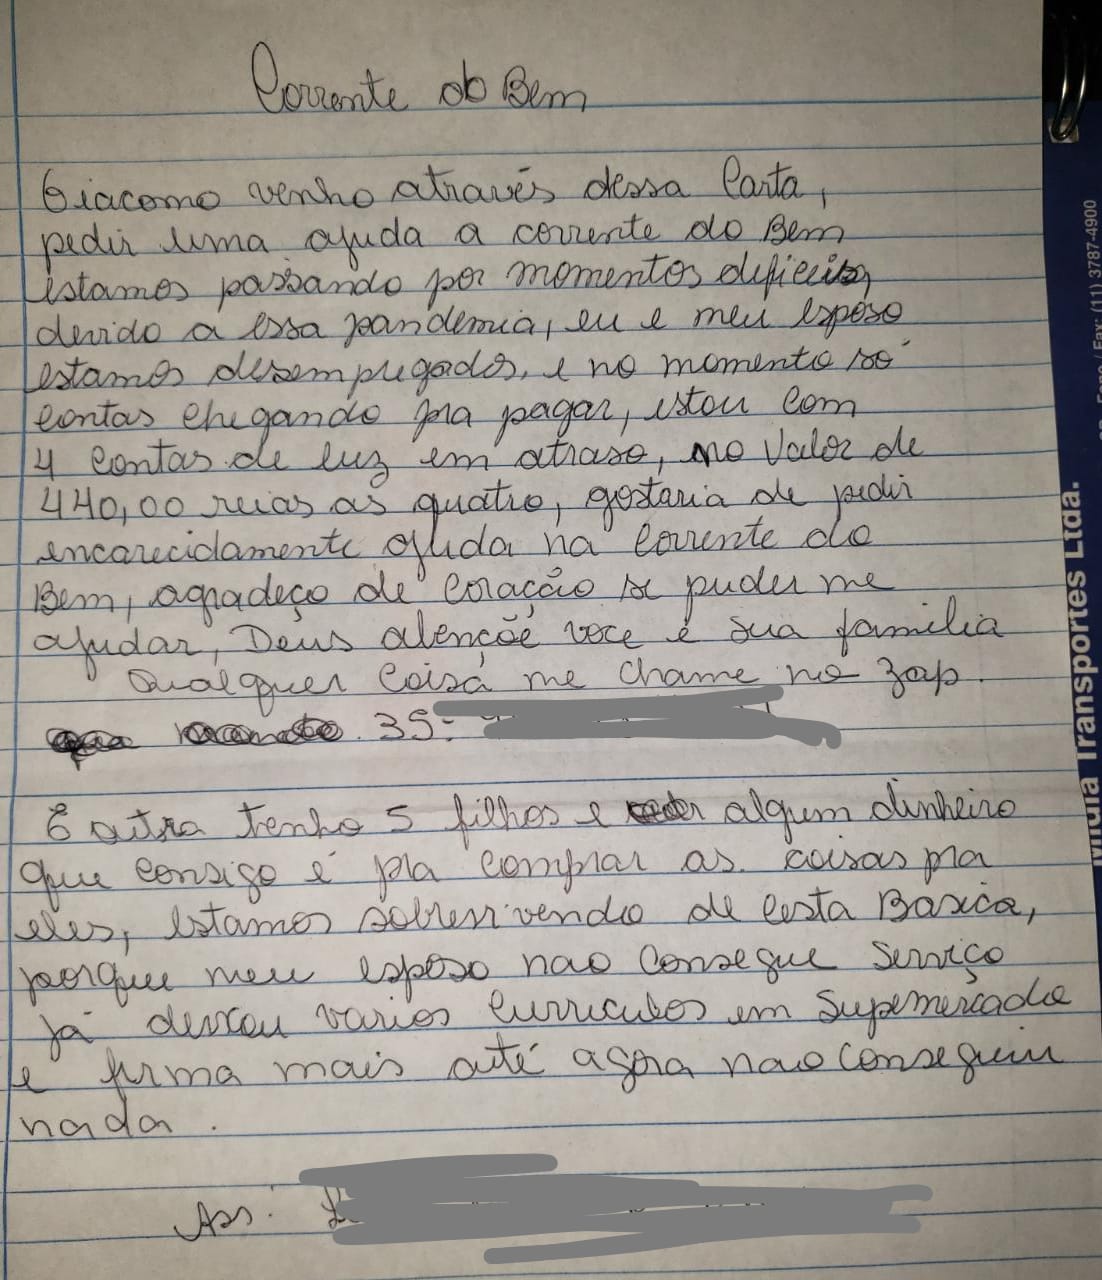 Corrente do Bem
Giacomo venho através dessa Carta,
pedir uma ajuda a corrente do Bem
estamos passando por momentos dificeis,
devido a essa pandemia, eu e meu esposo
estamos desempregados, e no momento só
contas chegando pra pagar, estou com
4 contas de luz em atraso, no Valor de
440,00 reias as quatro, gostaria de pedir
encarecidamente ajuda na corrente do
Bem, agradeço de coração se puder me
ajudar, Deus abençõe voce e sua familia
Qualquer coisa me chame no zap.
35-
E outra tenho 5 filhos e algum dinheiro
que consigo é pra comprar as coisas pra
eles, estamos sobrevivendo de cesta Basica,
porque meu esposo nao consegue Serviço
já deixou varios curriculos em Supermercado
e firma mais até agora nao conseguiu
nada.
Ass:
Transportes Ltda.
Fone / Fax: (11) 3787-4900